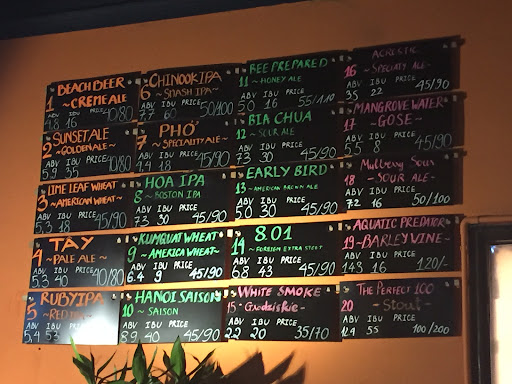 1 BEACH BEER
~ CREME ALE
ABV IBU PRICE
4.8 16 40/80
2 SUNSET ALE
~ GOLDEN ALE ~
ABV IBU PRICE
5.9 35 40/80
3 LIME LEAF WHEAT
~ AMERICAN WHEAT ~
ABV IBU PRICE
5.3 18 45/90
4 TAY
~ PALE ALE ~
ABV IBU PRICE
5.3 40 40/80
5 RUBY IPA
ABV IBU PRICE
5.4 53
6 CHINOOK IPA
~ SMASH IPA ~
ABV IBU PRICE
7.7 60 50/100
7 PHỞ
~ SPECIALTY ALE ~
ABV IBU PRICE
4.4 18 45/90
8 HOA IPA
~ BOSTON IPA
ABV IBU PRICE
7.3 30 45/90
9 KUMQUAT WHEAT
~ AMERICA WHEAT ~
ABV IBU PRICE
6.4 9 45/90
10 HANOI SAISON
~ SAISON
ABV IBU PRICE
8.9 40 45/90
11 BEE PREPARED
~ HONEY ALE
ABV IBU PRICE
5.0 16 55/110
12 BIA CHUA
~ SOUR ALE
ABV IBU PRICE
7.3 30 45/90
13 EARLY BIRD
~ AMERICAN BROWN ALE
ABV IBU PRICE
5.0 30 45/90
14 8.01
~ FOREIGN EXTRA STOUT
ABV IBU PRICE
6.8 43 45/90
15 WHITE SMOKE
~ Grodziskie ~
ABV IBU PRICE
2.2 20 35/70
16 ACROSTIC
~ SPECIALTY ALE ~
ABV IBU PRICE
3.5 22 45/90
17 MANGROVE WATER
~ GOSE ~
ABV IBU PRICE
5.5 8 45/90
18 Mulberry Sour
~ SOUR ALE ~
ABV IBU PRICE
7.2 16 50/100
19 AQUATIC PREDATOR
~ BARLEY WINE ~
ABV IBU PRICE
14.3 16 120/-
20 THE PERFECT 100
~ Stout ~
ABV IBU PRICE
12.4 55 100/200